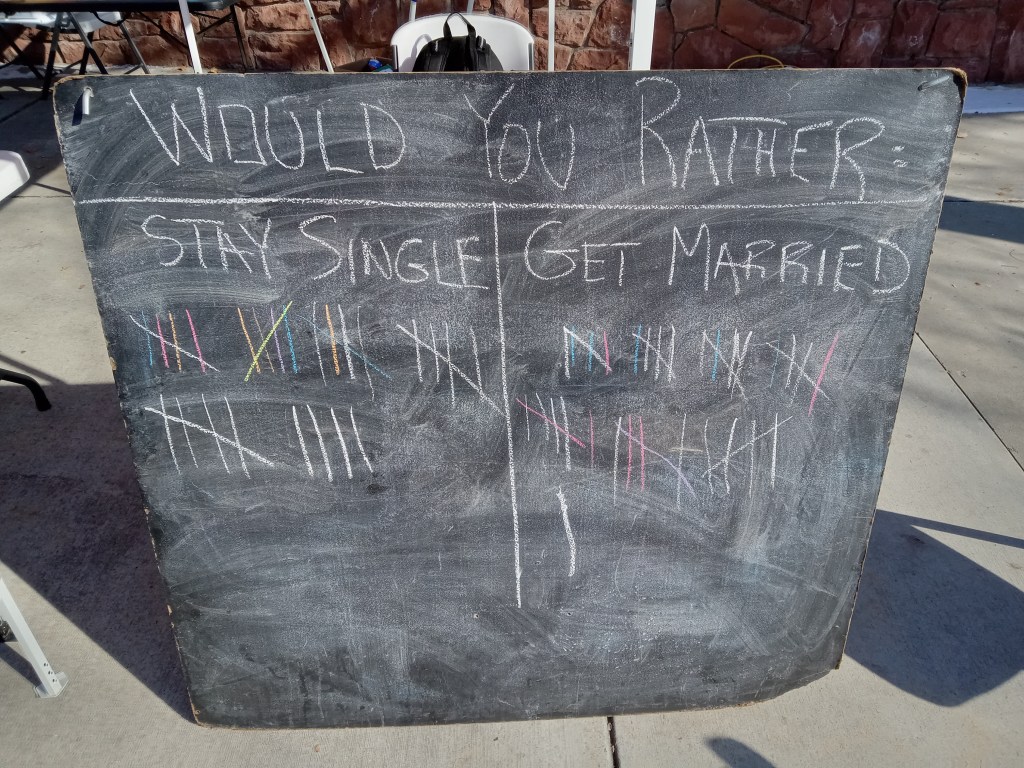 WOULD YOU RATHER:
STAY SINGLE
GET MARRIED